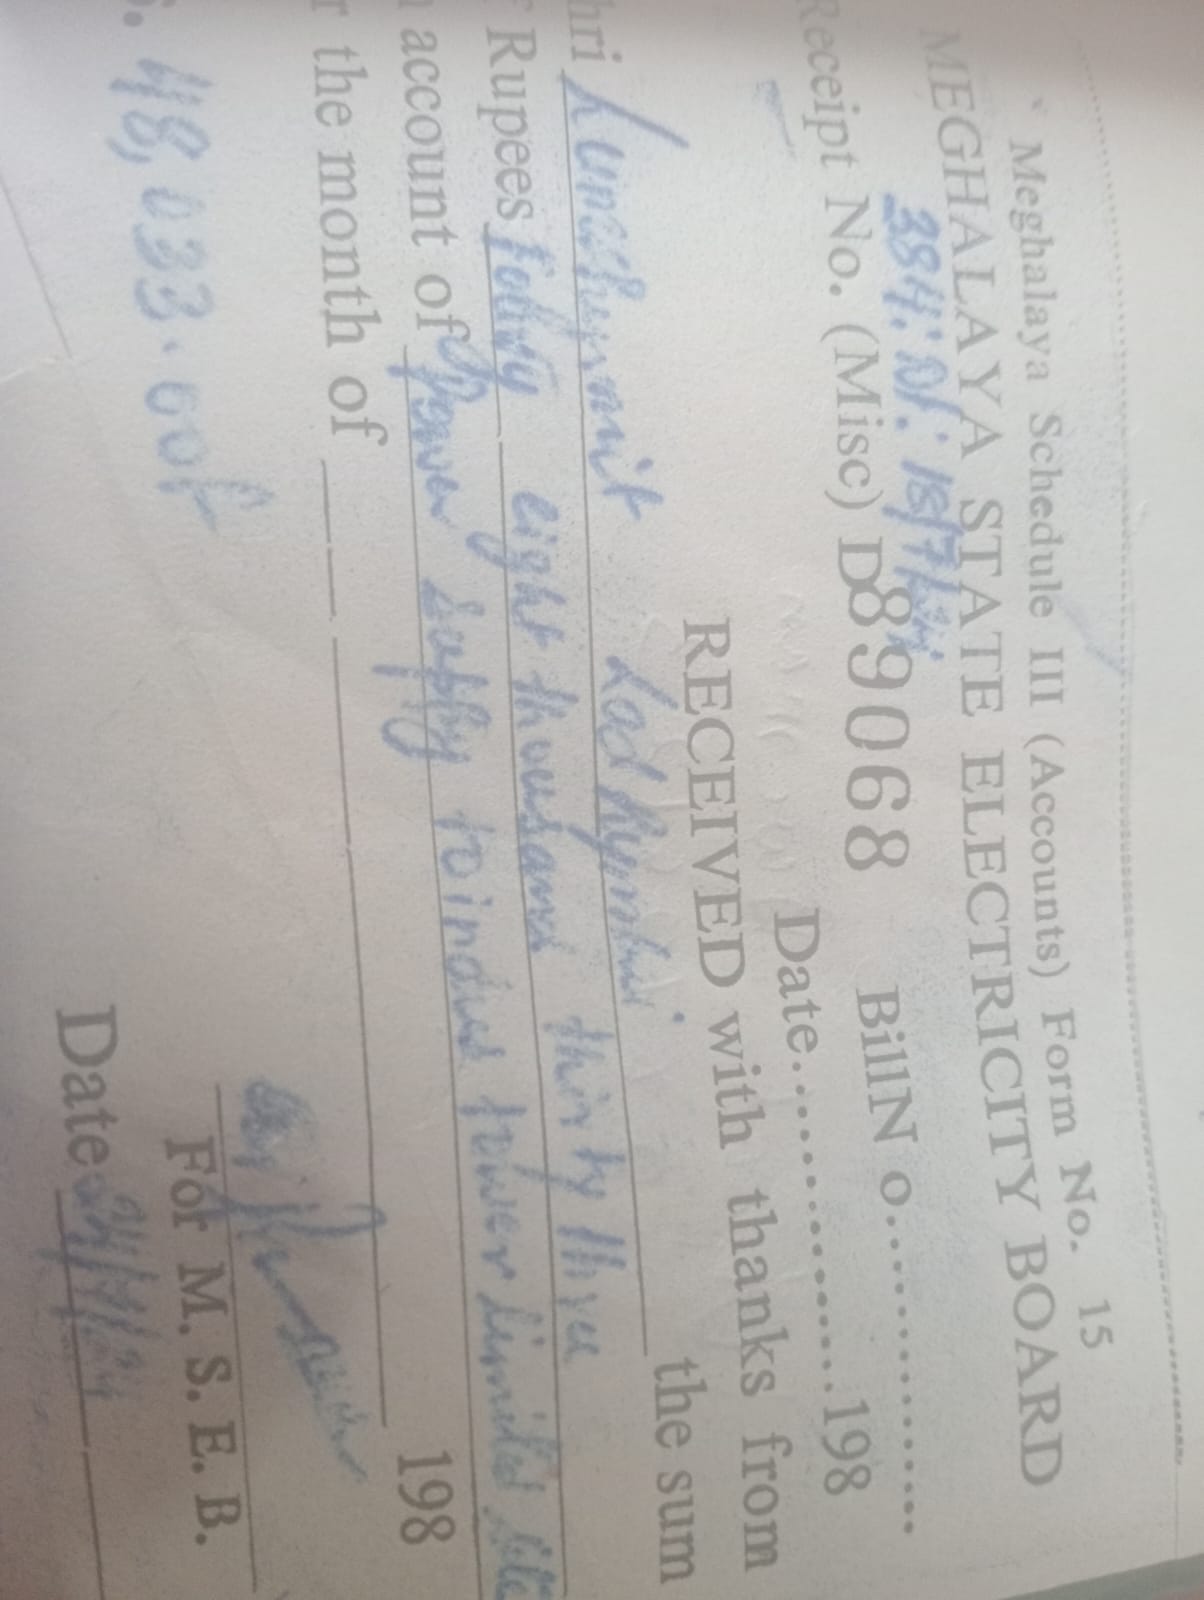 Meghalaya Schedule III (Accounts) Form No. 15
MEGHALAYA STATE ELECTRICITY BOARD
Receipt No. (Misc) D89068 BillN o..............
Date..............198
RECEIVED with thanks from
hri the sum
Rupees fourty eight thousand thirty three
account of Power supply to indus tower limited
r the month of 198
48,033.00
For M. S. E. B.
Date